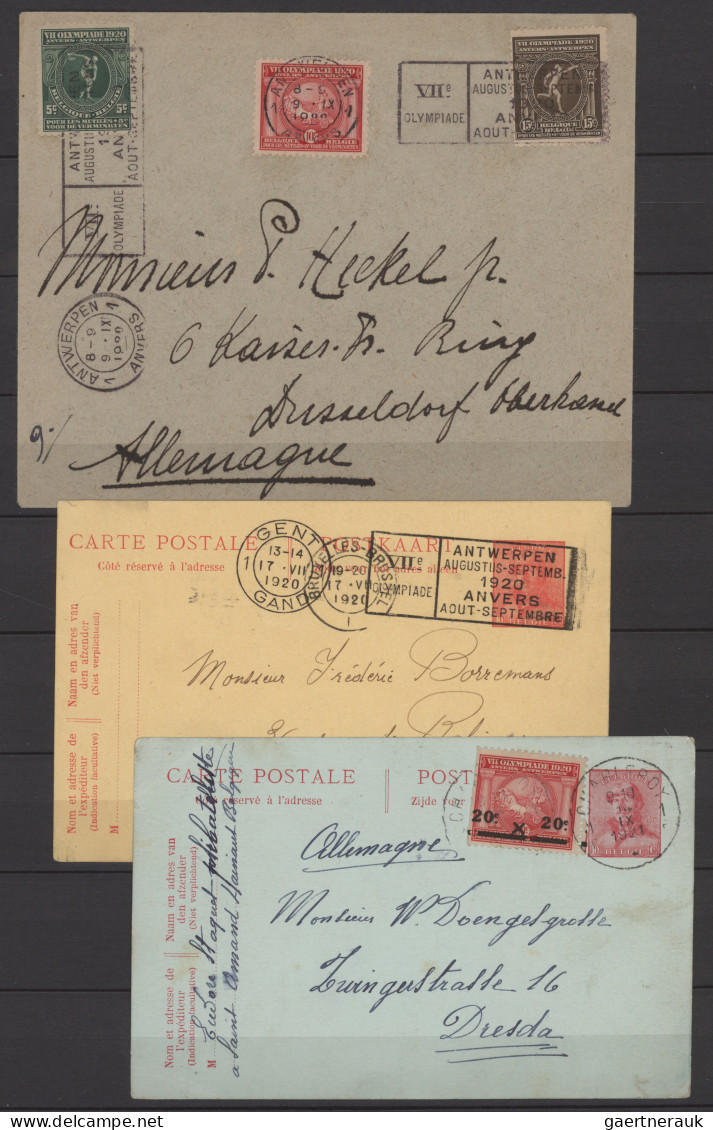 VII OLYMPIADE 1920
ANVERS-ANTWERPEN
5c BELGIQUE-BELGIE 5c
POUR LES MUTILÉS
VOOR DE VERMINKTEN
VII OLYMPIADE 1920
ANTWERPEN 1
8-9
9 · IX
ANVERS
10c
BELGIE
VIIe
OLYMPIADE
ANTWERPEN
AUGUSTUS-SEPTEMB.
AOUT-SEPTEMBRE
VII OLYMPIADE 1920
ANVERS-ANTWERPEN
15c BELGIQUE 15c
ANTW
AUGUSTUS
OLYMPIADE
AOUT-SEPTEMBRE
Monsieur P. Heckel jr.
ANTWERPEN 1
8-9
9 · IX
1920
1 ANVERS
6 Kaiser-Fr. Ring
Dusseldorf Oberkassel
9-/
Allemagne
CARTE POSTALE POSTKAART
Côté réservé à l'adresse
GENT
13-14
17 · VII
1920
1 GAND
BRUXELLES-BRUSSEL
19-20
17 · VII
1920
1
VIIe
OLYMPIADE
ANTWERPEN
AUGUSTUS-SEPTEMB.
1920
ANVERS
AOUT-SEPTEMBRE
Naam en adres van
den afzender
(Niet verplichtend)
Nom et adresse de
l'expéditeur
(Indication facultative)
M
Monsieur Frédéric Borremans
CARTE POSTALE POST
Côté réservé à l'adresse Zijde voor
VII OLYMPIADE 1920
ANVERS-ANTWERPEN
20c X 20c
CHARLEROY 1
IX
1921
Naam en adres van
den afzender
(Niet verplichtend)
Nom et adresse de
l'expéditeur
(Indication facultative)
M
a Saint Amand Hainaut Belgique
Allemagne
Monsieur W. Doengesgrosse
Zwingerstrasse 16
Dresda
www.delcampe.net
gaertnerauk